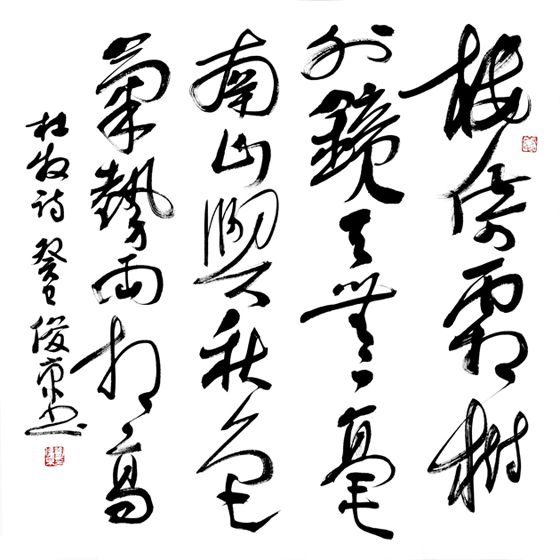 楼倚霜树
外鏡天無一毫
南山與秋色
氣勢兩相高
杜牧诗 癸巳 俊书